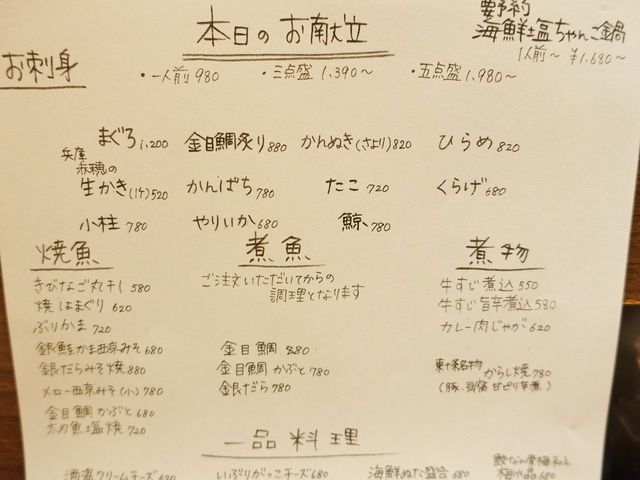 本日のお献立
要予約
海鮮塩ちゃんこ鍋
1人前〜 ¥1.680〜
お刺身
・一人前 980 ・三点盛 1.390〜 ・五点盛 1.980〜
まぐろ 1,200 金目鯛炙り 880 かんぬき(さより) 820 ひらめ 820
兵庫
赤穂の
生かき(1ケ) 520 かんぱち 780 たこ 720 くらげ 680
小柱 780 やりいか 680 鯨 780
焼魚
きびなご丸干し 580
焼はまぐり 620
ぶりかま 720
銀鮭かま西京みそ 680
銀だらみそ焼 880
メロー西京みそ(小) 780
金目鯛かぶと 680
太刀魚塩焼 720
煮魚
ご注文いただいてからの
調理となります
金目鯛 880
金目鯛かぶと 780
銀だら 780
煮物
牛すじ煮込 550
牛すじ旨辛煮込 580
カレー肉じゃが 620
東十条名物 からし焼 780
(豚、豆腐 甘ピリ辛煮)
一品料理
酒盗クリームチーズ 620 いぶりがっこチーズ 680 海鮮ぬた盛合 680
梅水晶 580